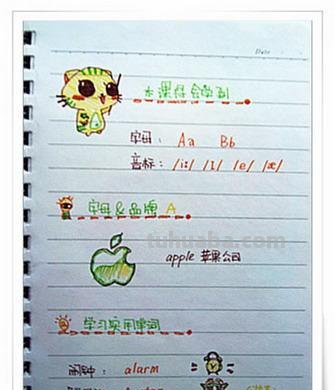 Date
本课你会学到
字母: Aa Bb
音标: /i:/ /I/ /e/ /æ/
字母&品牌 A
tuhuaba.com
apple 苹果公司
学习实用单词
闹钟: alarm